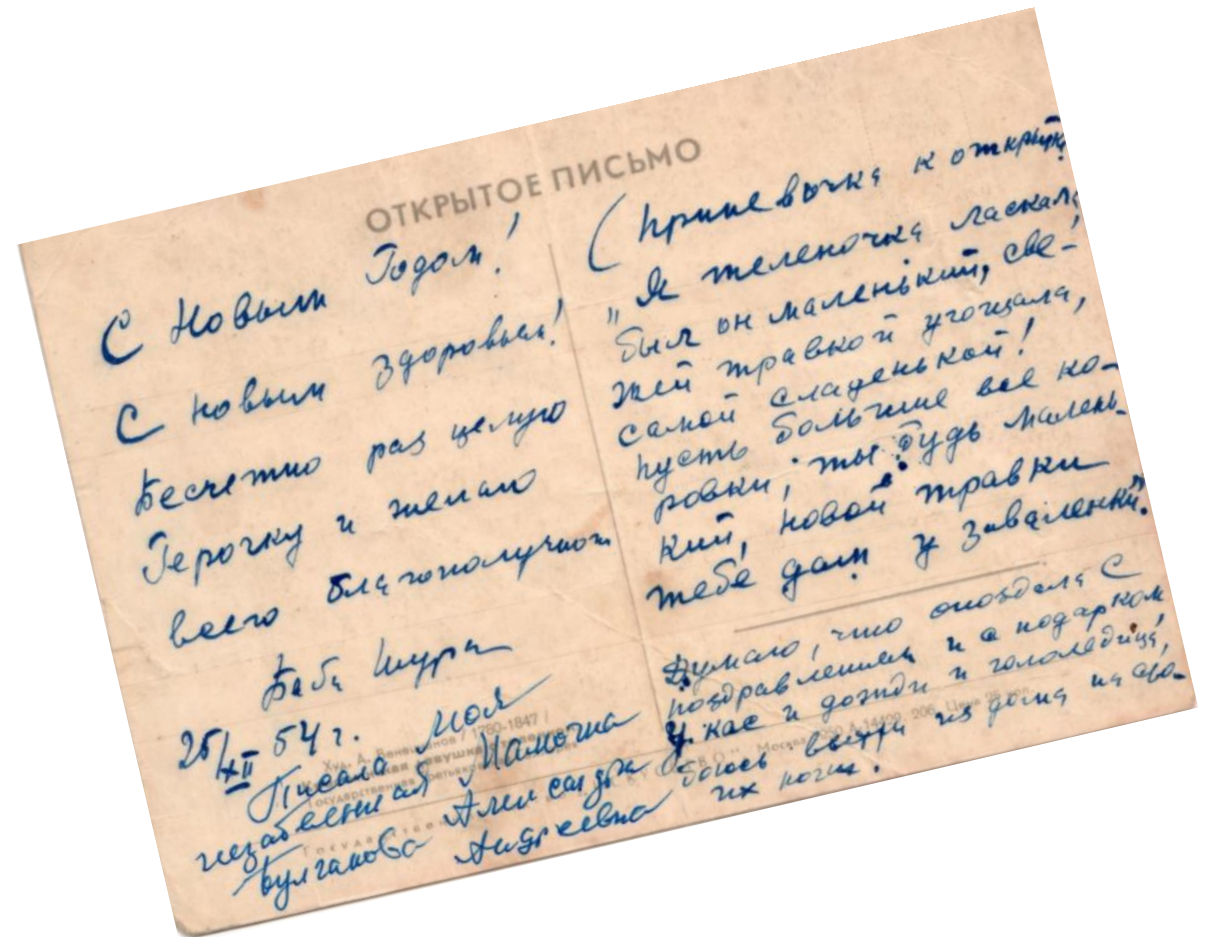 ОТКРЫТОЕ ПИСЬМО
С Новым Годом!
С новым здоровьем!
Бесчетно раз целую
Герочку и желаю
всего благополучного
Баба Шура
25/XII 54 г.
Писала моя
незабвенная Мамочка
Булгакова Александра
Андреевна
(Припевочка к открытке
"Я теленочка ласкала,
был он маленький, све-
жей травкой угощала,
самой сладенькой!
Пусть большие все ко-
ровки, ты будь малень-
кий, новой травки
тебе дам у Заваленки."
Думаю, что опоздала с
поздравлением и с подарком
Ужас и дожди и гололедица,
боюсь выйти из дома на сво-
их ногах.
Худ. А. Венецианов / 1780-1847 /
Государственная Третьяковская
Москва 1950 А-14400. 206. Цена 25 коп.